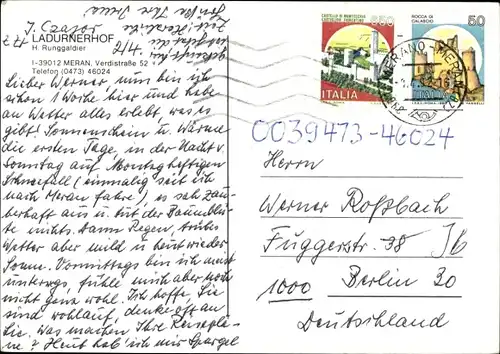 J. Czajor
LADURNERHOF
H. Runggaldier
I-39012 MERAN, Verdistraße 52
Telefon (0473) 46024
Lieber Werner, nun bin ich
schon 1 Woche hier und habe
an Wetter alles erlebt, was es
gibt! Sonnenschein u. Wärme
die ersten Tage, in der Nacht v.
Sonntag auf Montag heftigen
Schneefall (einmalig seit ich
nach Meran fahre), es sah zau-
berhaft aus u. tut der Baumblü-
te nichts. Dann Regen, trübes
Wetter aber mild u. heut wieder
Sonne. Vormittags bin ich meist
unterwegs, fühle mich aber noch
nicht ganz wohl. Ich hoffe, Sie
sind wohlauf, denke oft an
Sie. Was machen Ihre Reseplä-
ne? Heut hab ich mir Spargel
CASTELLO DI MONTECCHIO
CASTIGLION FIORENTINO
650
ITALIA
ROCCA DI
CALASCIO
50
ITALIA
MERANO MERAN
0039473-46024
Herrn
Werner Roßbach
Fuggerstr. 38 Jb
1000 Berlin 30
Deutschland